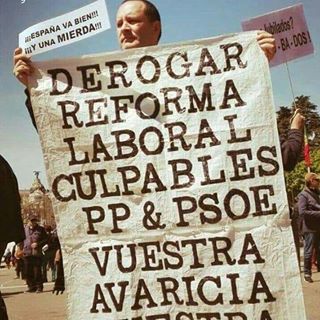 ¡¡¡ESPAÑA VA BIEN!!!
¡¡¡Y UNA MIERDA!!!
Jubilados?
- BA - DOS!
DEROGAR
REFORMA
LABORAL
CULPABLES
PP & PSOE
VUESTRA
AVARICIA
NUESTRA